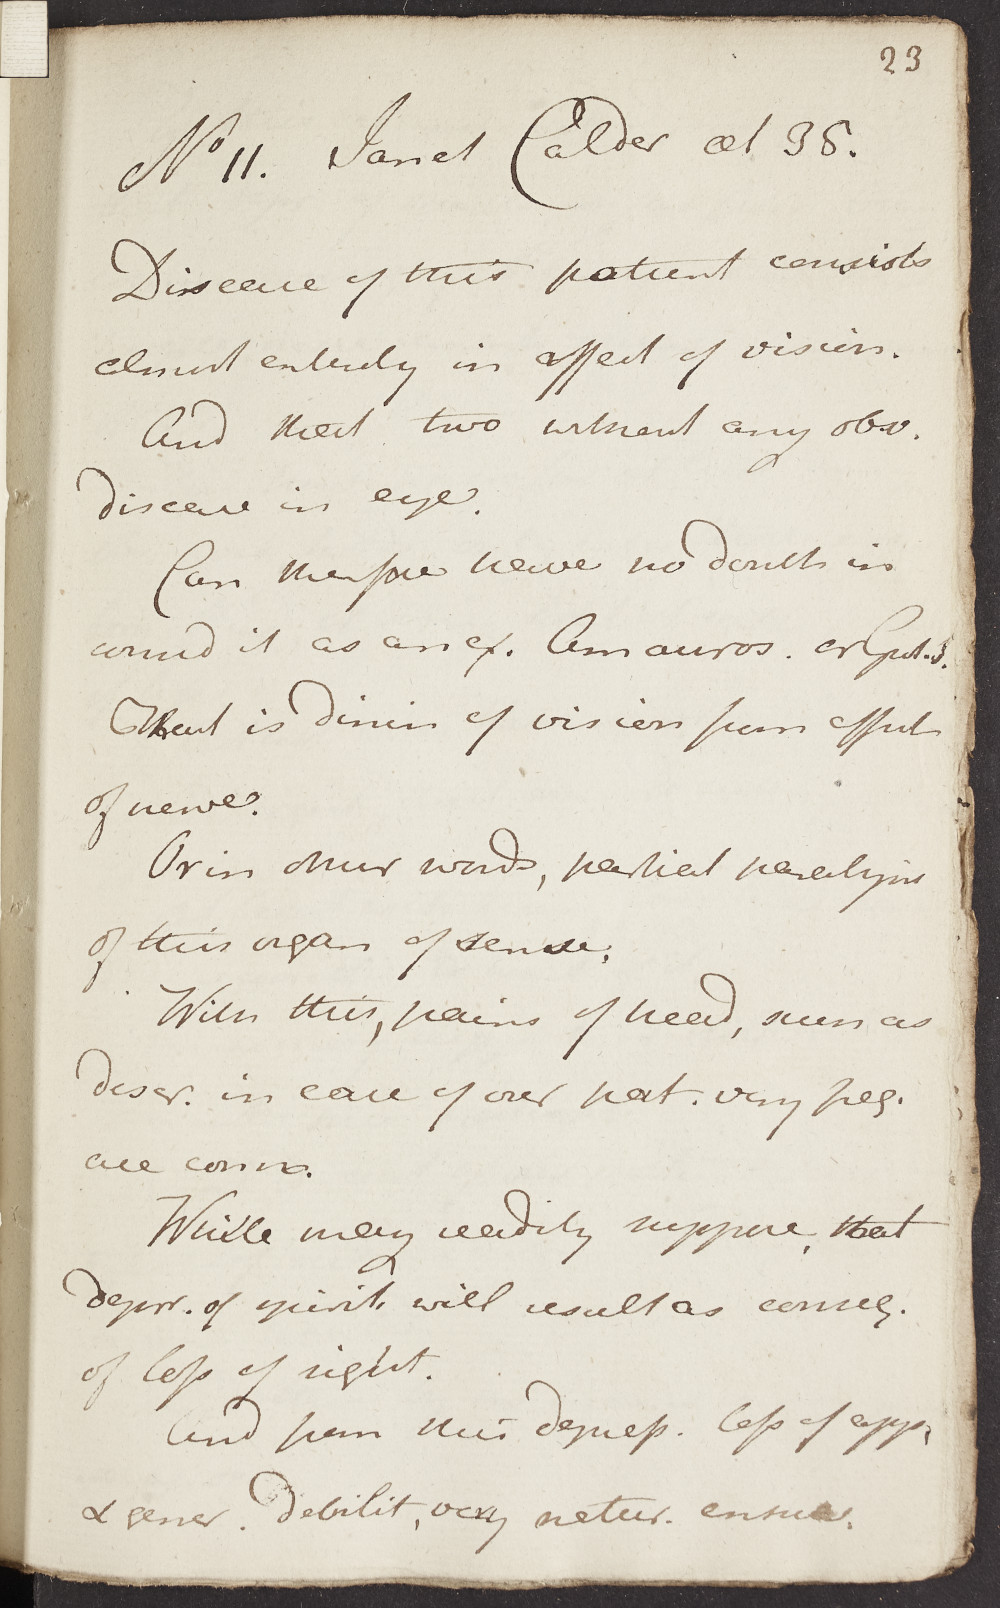 23
No 11. Janet Calder æt 36.
Disease of this patient consists
almost entirely in affect of vision.
And that two without any obv.
disease in eye.
Can therfore have no doubt in
consid it as an ex. Amauros. or Gut. S.
That is dimin of vision from affect
of nerve.
Or in other words, partial paralysis
of this organ of sense.
With this, pains of head, such as
descr. in case of our pat. very freq.
are conn.
While may readily suppose, that
depr. of spirit will result as conseq.
of loss of sight.
And from this depress. loss of app.
& gener. debilit, very natur. ensue.